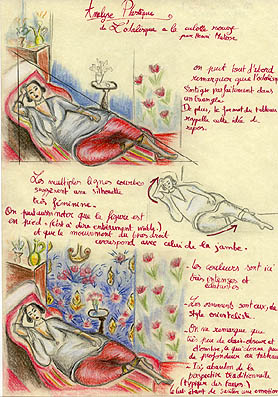 Analyse Plastique
de L'odalisque a la culotte rouge
par Henri Matisse
on peut tout d'abord
remarquer que l'odalisque
s'intègre parfaitement dans
un triangle.
De plus, le format du tableau
rappelle cette idée de
repos.
Les multiples lignes courbes
suggèrent une silhouette
très féminine.
On peut aussi noter que la figure est
en pied
et que le mouvement du bras droit
correspond avec celui de la jambe.
- Les couleurs sont ici
très intenses et
saturées
- Les ornements sont eux, de
style orientaliste.
- On remarque que
très peu de clair-obscur et
d'ombre, ce qui donne peu
de profondeur au tableau
- Ici, abandon de la
perspective traditionnelle
(typique des fauves)
le but étant de susciter une émotion